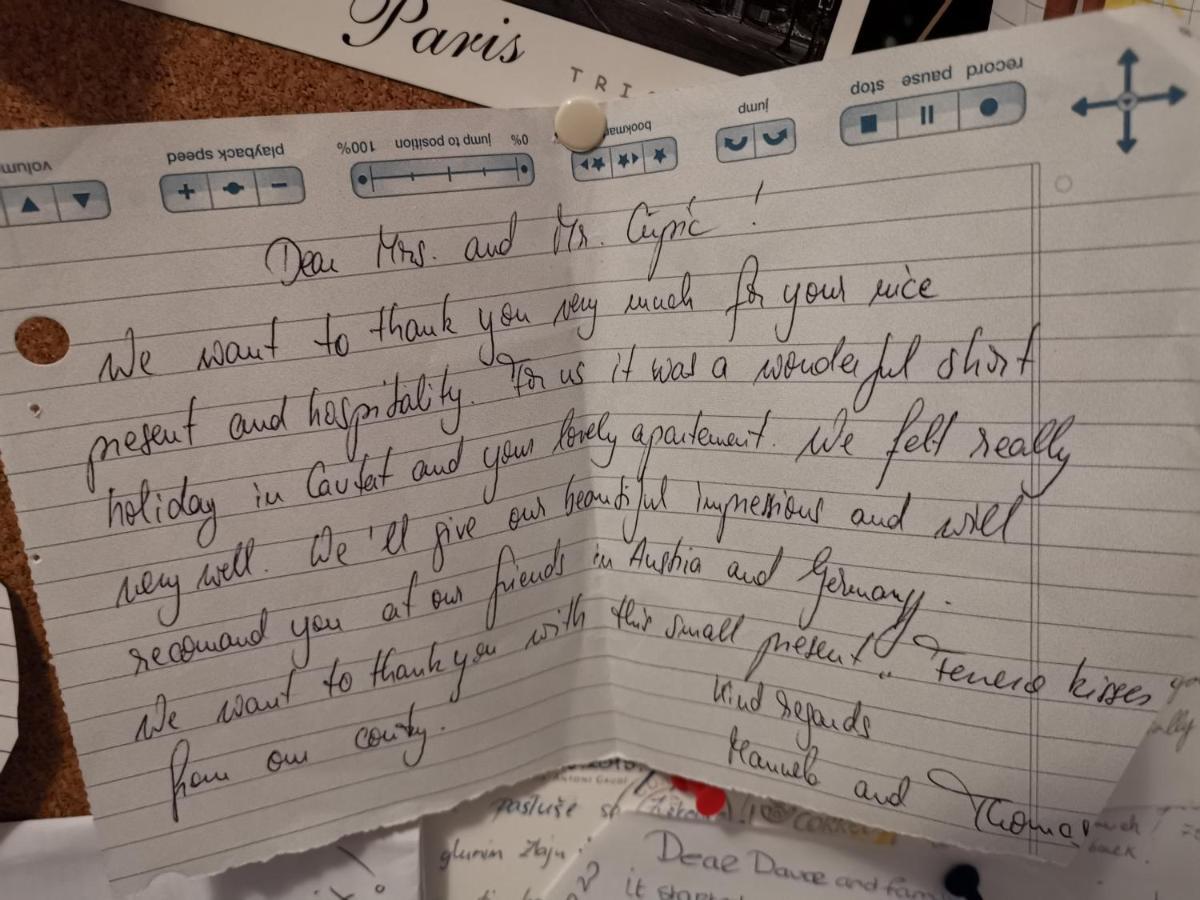 Paris
TRI
record pause stop
jump
bookmar
0% jump to position 100%
playback speed
volum
Dear Mrs. and Mr. Cupić !
We want to thank you very much for your nice
present and hospitality. For us it was a wonderful short
holiday in Cavtat and your lovely apartement. We felt really
very well. We'll give our beautiful impressions and will
recomand you at our friends in Austria and Germany.
We want to thank you with this small present "
kisses
from our country.
Kind regards
Manuela and Thomas
glumim
Dear
and fam
it start
back.